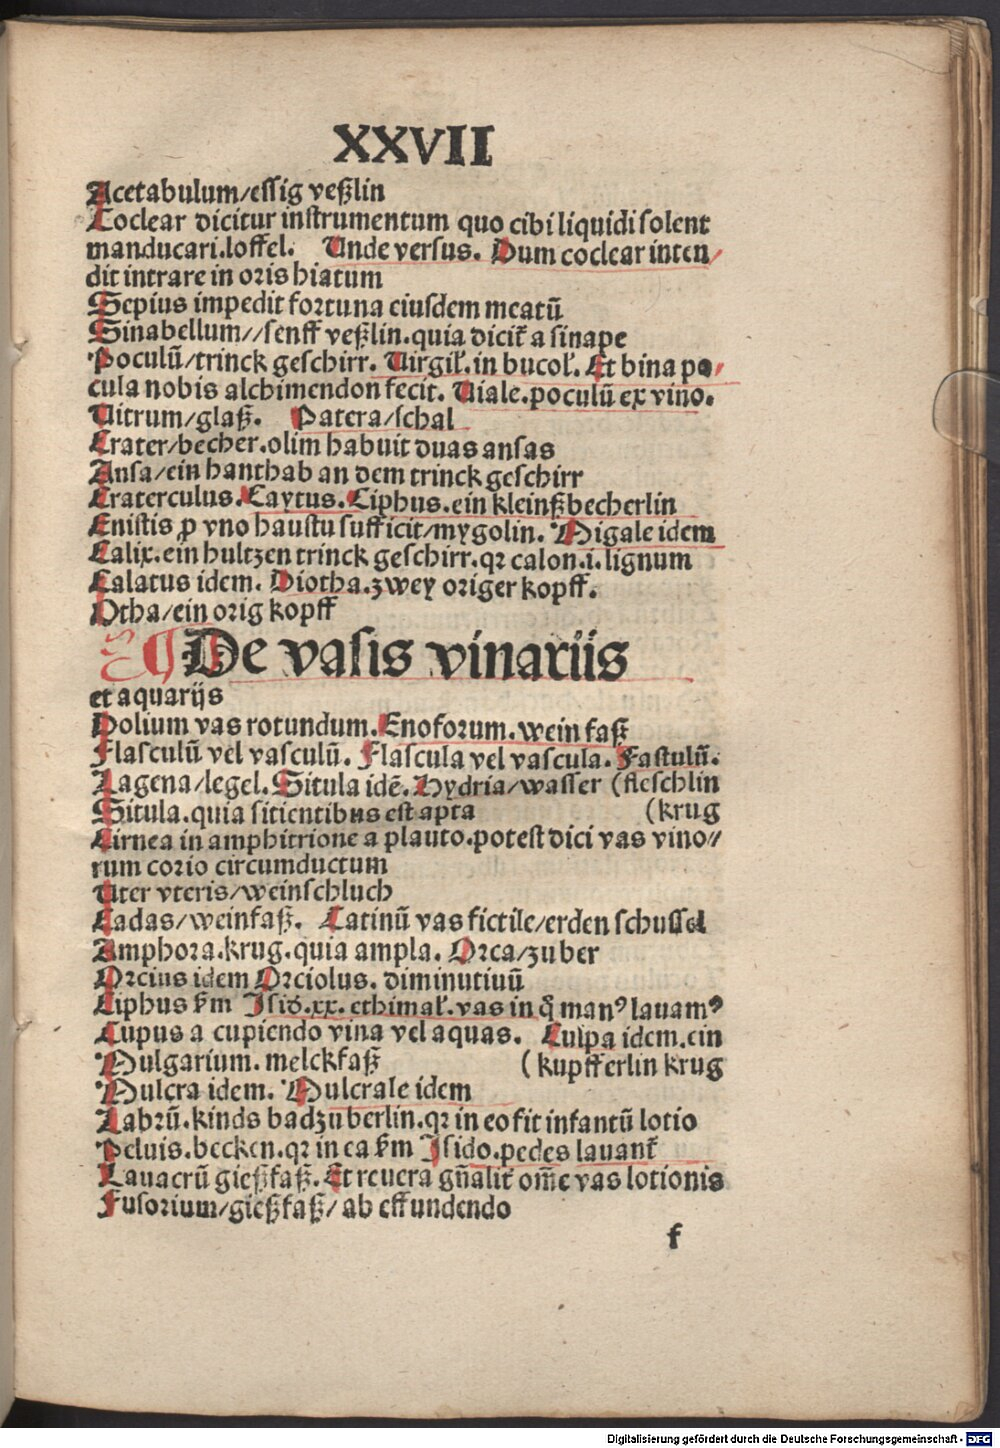 XXVII
Acetabulum/essig veßlin
Coclear dicitur instrumentum quo cibi liquidi solent
manducari.loffel. Unde versus. Dum coclear inten/
dit intrare in oris hiatum
Sepius impedit fortuna eiusdem meatū
Sinabellum//senff veßlin.quia dicit̄ a sinape
Poculū/trinck geschirr. Uirgil̄.in bucol̄. Et bina po/
cula nobis alchimendon fecit. Uiale.poculū ex vino.
Uitrum/glaß. Patera/schal
Crater/becher.olim habuit duas ansas
Ansa/ein hanthab an dem trinck geschirr
Craterculus.Caytus.Ciphus.ein kleinß becherlin
Enistis ꝓ vno haustu sufficit/mygolin. Migale idem
Calix.ein hultzen trinck geschirr.qꝛ calon.i.lignum
Calatus idem. Diotha.zwey origer kopff.
Otha/ein orig kopff
De vasis vinariis
et aquarijs
Dolium vas rotundum.Enoforum.wein faß
Flasculū vel vasculū. Flascula vel vascula.Fastulū.
Lagena/legel.Situla idē.Hydria/wasser (fleschlin
Situla.quia sitientibus est apta (krug
Cirnea in amphitrione a plauto.potest dici vas vino//
rum corio circumductum
Uter vteris/weinschluch
Cadas/weinfaß. Catinū vas fictile/erden schussel
Amphora.krug.quia ampla. Orca/zuber
Orcius idem Orciolus. diminutiuū
Ciphus ẜm Isid̄.xx.ethimal̄.vas in q̄ manꝰ lauamꝰ
Cupus a cupiendo vina vel aquas. Culpa idem.ein
Mulgarium. melckfaß (kupfferlin krug
Mulcra idem. Mulcrale idem
Labrū.kinds badzuberlin.qꝛ in eo fit infantū lotio
Peluis.becken.qꝛ in ea ẜm Isido.pedes lauant̄
Lauacrū gießfaß.Et reuera gn̄alit̄ om̄e vas lotionis
Fusorium/gießfaß/ab effundendo
f
Digitalisierung gefördert durch die Deutsche Forschungsgemeinschaft - DFG